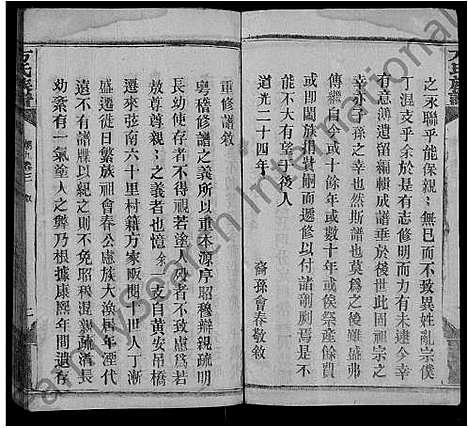 之永聯乎能保親親無已而不致異姓亂宗僕
丁湼支乎余於是有志修明而力有未逮今幸
有息
遺留編輯成譜垂於後世此固祖宗之
幸亦子孫之幸也然斯譜也莫為之後雖盛弗
傳繼自今或十餘年或數十年或俟祭產餘費
或即闔族捐貲嗣而遷修以付諸剞劂焉是不
能不大有望于後人
道光二十四年
裔孫會春敬敘
重修譜敘
粵稽修譜之義所以重本源序昭穆辨親疏明
長幼使存者不得視若塗人歿者不致慮為若
敖尊尊親親之義者也憶余一支自黃安吊橋
遷來弦南六十里村籍方家畈閱十世人丁漸
盛遷徙日繁族祖會春公慮族大渙居年湮代
遠不有譜牒以親之則不免昭穆混親疏淆長
幼紊有一氣塗人之弊乃根據康熙年間遺存
方氏族譜
卷二
敘
二
方氏族譜
FamilySearch International